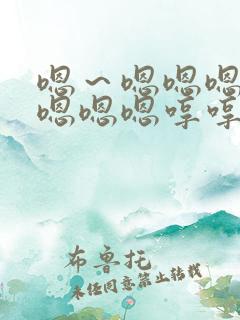 嗯～嗯嗯嗯
嗯嗯嗯哼哼
布鲁托
未经同意禁止转载